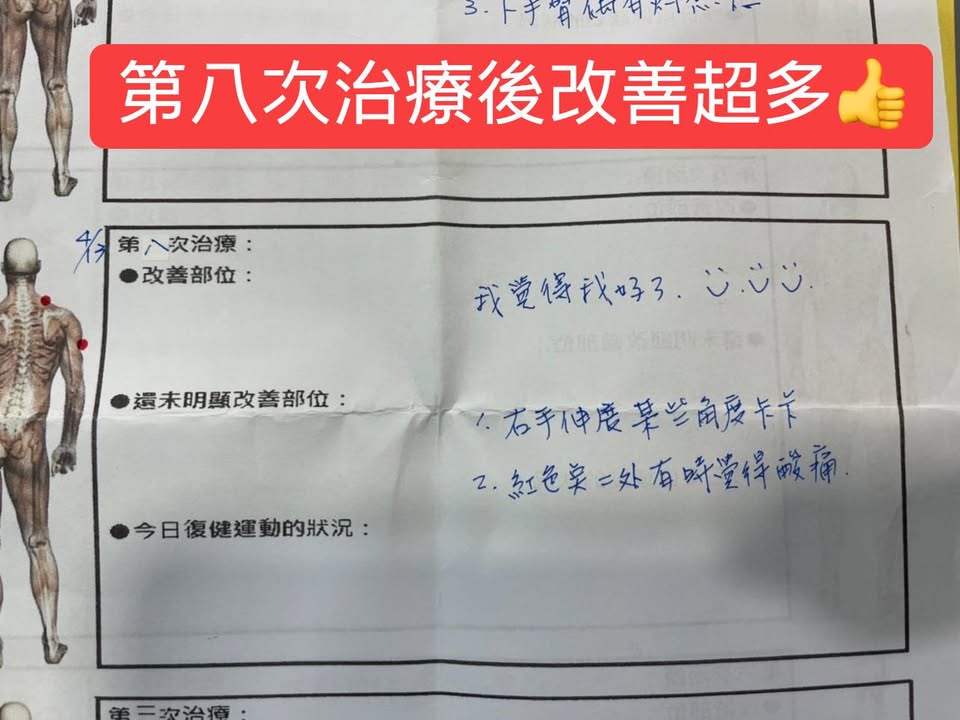 3. 下手臂
第八次治療後改善超多👍
4/3 第八次治療：
●改善部位：
我覺得我好了. :) . :) :) .
●還未明顯改善部位：
1. 右手伸展某些角度卡卡
2. 紅色點二処有時覺得酸痛.
●今日復健運動的狀況：
第三次治療：